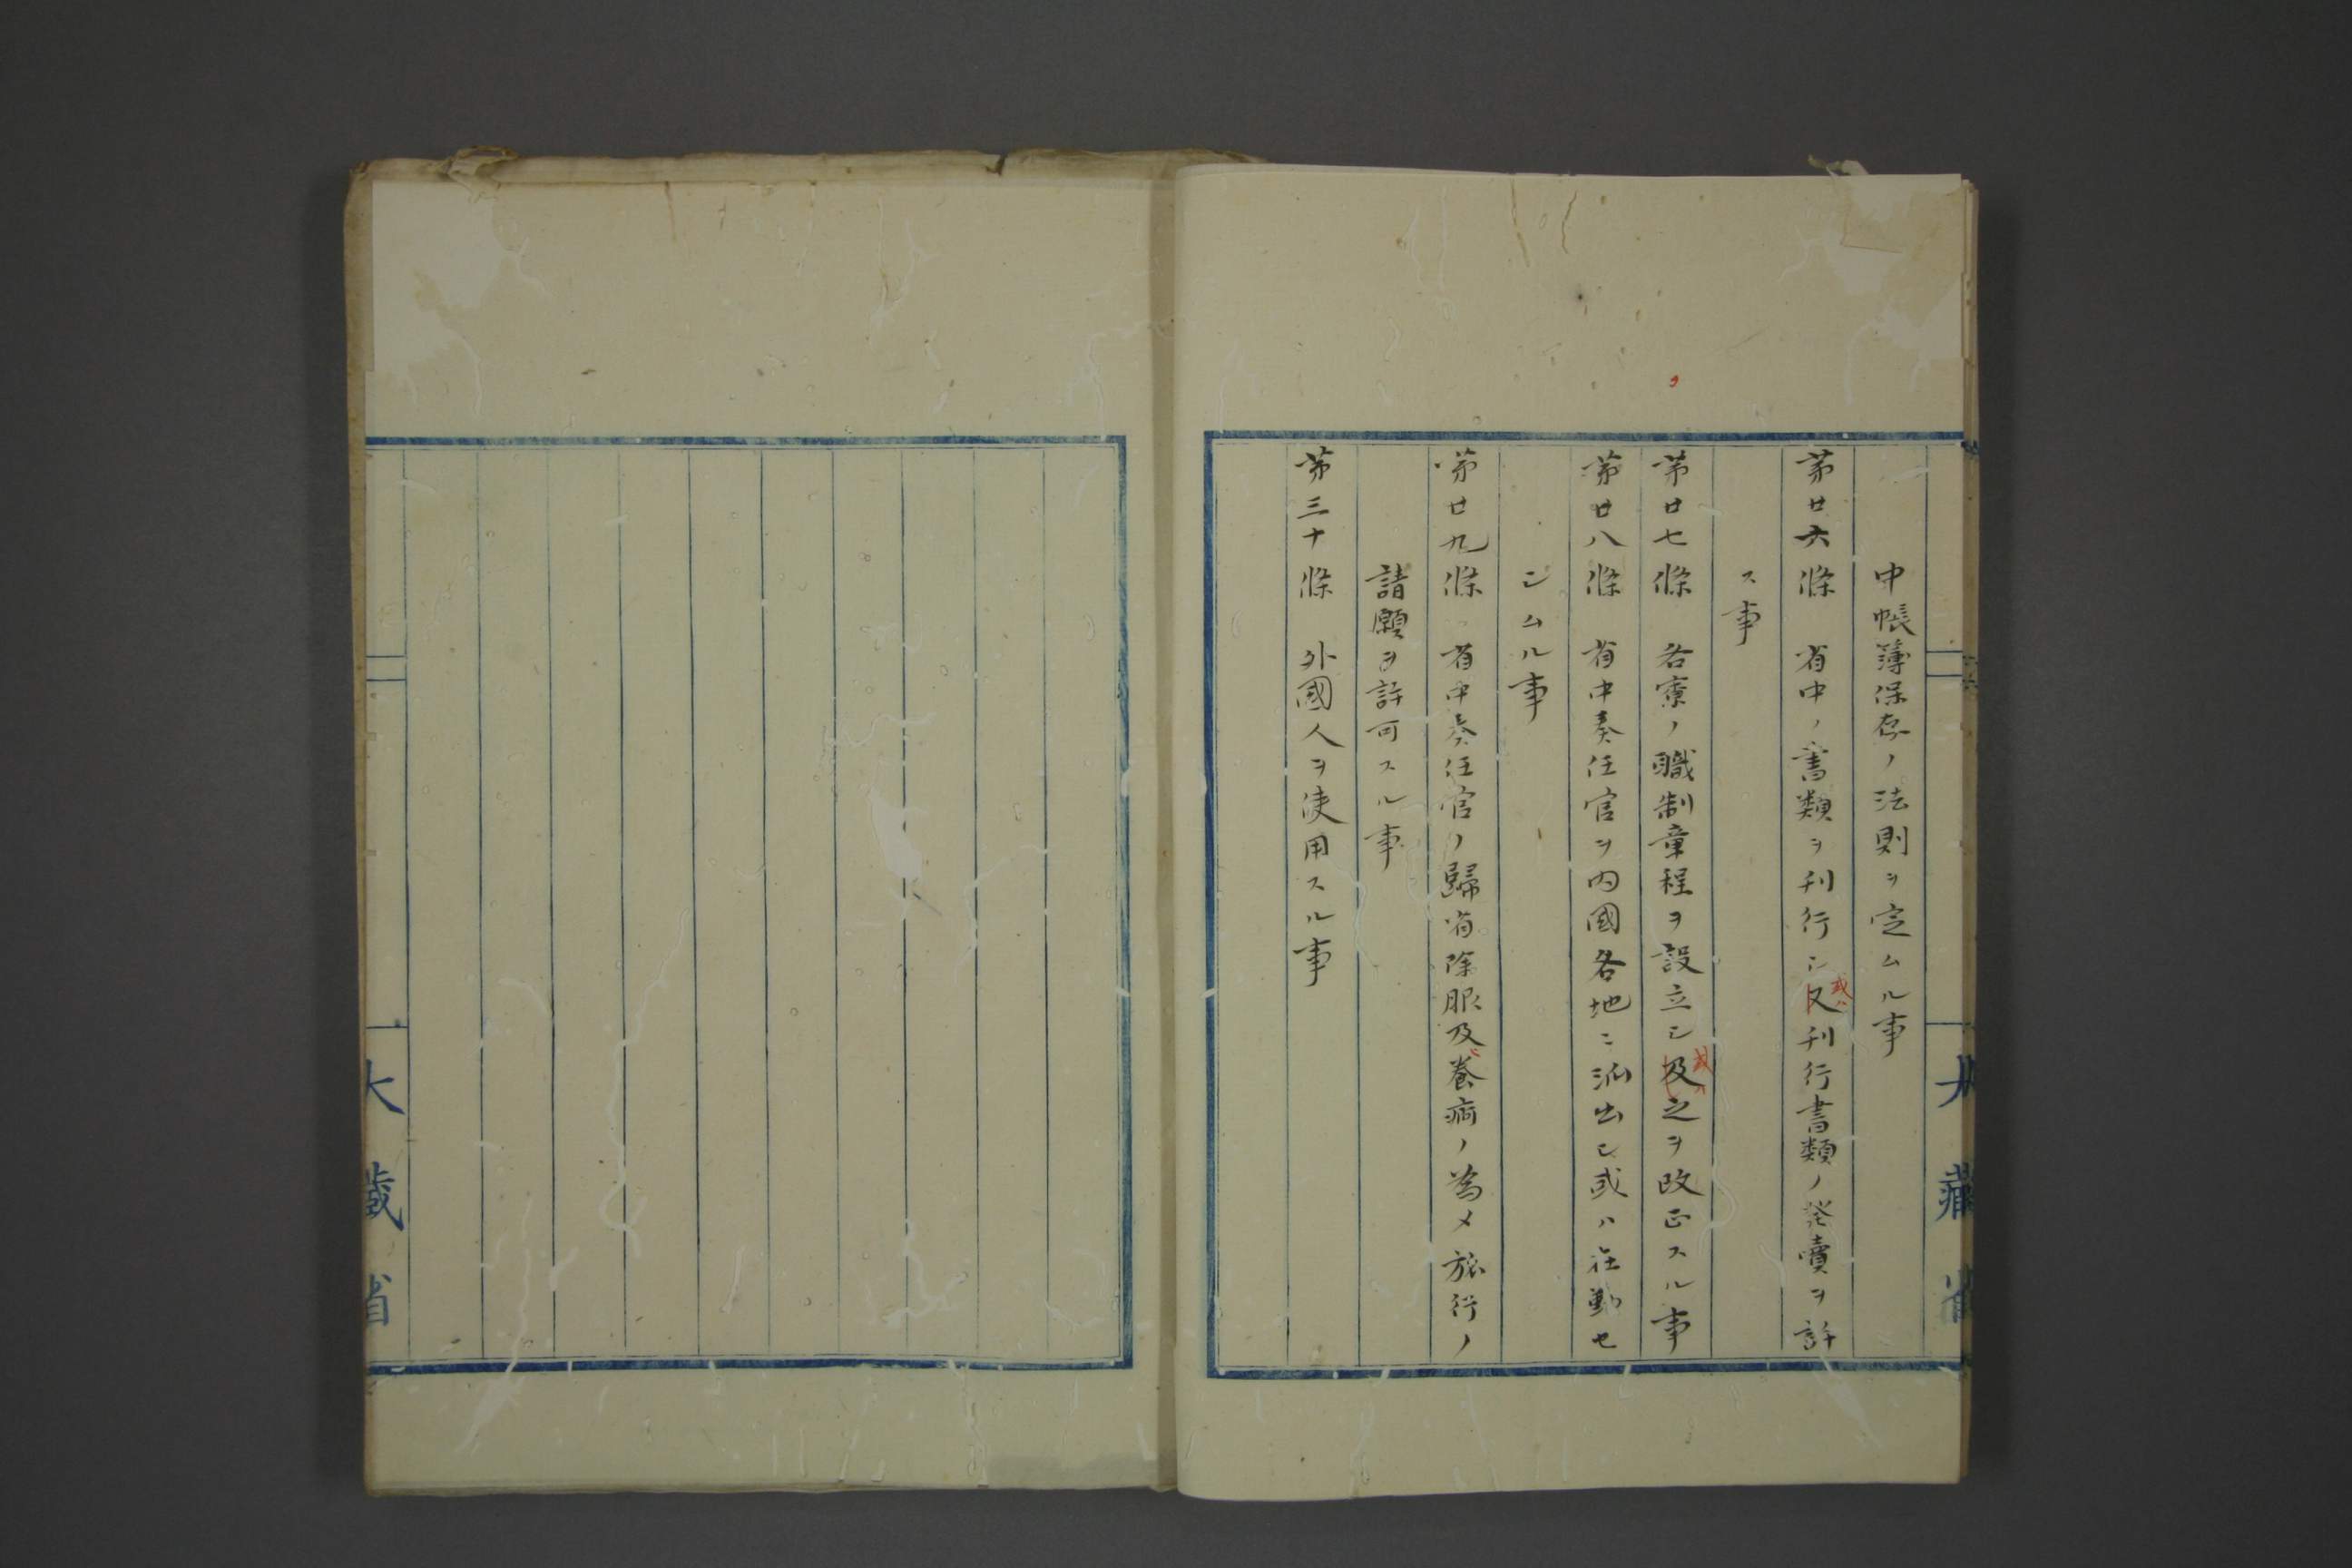 中帳簿保存ノ法則ヲ定ムル事
第廿六條 省中ノ書類ヲ刊行シ又刊行書類ノ發賣ヲ許
或ハ
ス事
第廿七條 各寮ノ職制章程ヲ設立シ及之ヲ改正スル事
或ハ
第廿八條 省中奏任官ヲ内國各地ニ派出シ或ハ在勤セ
シムル事
第廿九條 省中奏任官ノ歸省除服及養病ノ為メ旅行ノ
請願ヲ許可スル事
第三十條 外國人ヲ使用スル事
大藏省
大藏省